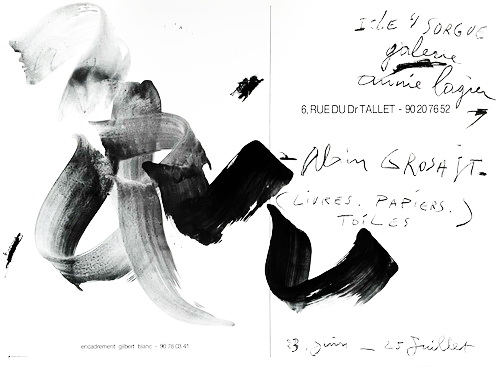 ISLE s/ SORGUE
galerie
annie lagier
6, RUE DU Dr TALLET - 90 20 76 52
Alain GROSAJT.
(LIVRES. PAPIERS.
TOILES)
23. juin _ 25 Juillet
encadrement gilbert blanc - 90 78 03 41